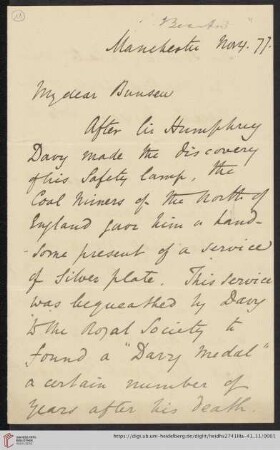 Manchester Nov 4. 77.
My dear Bunsen
After Sir Humphrey
Davy made the discovery
of his Safety lamp, the
Coal Miners of the North of
England gave him a hand-
-some present of a service
of Silver plate. This service
was bequeathed by Davy
to the Royal Society to
found a "Davy Medal"
a certain number of
years after his death.
https://digi.ub.uni-heidelberg.de/diglit/heidhs2741IIIa-41_11/0001